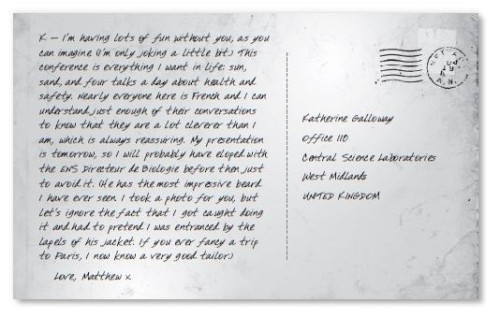 K — I'm having lots of fun without you, as you
can imagine (I'm only joking a little bit.) This
conference is everything I want in life: sun,
sand, and four talks a day about health and
safety. Nearly everyone here is French and I can
understand just enough of their conversations
to know that they are a lot cleverer than I
am, which is always reassuring. My presentation
is tomorrow, so I will probably have eloped with
the ENS Directeur de Biologie before then just
to avoid it. (He has the most impressive beard
I have ever seen. I took a photo for you, but
let's ignore the fact that I got caught doing
it and had to pretend I was entranced by the
lapels of his jacket. If you ever fancy a trip
to Paris, I now know a very good tailor.)
Love, Matthew x
Katherine Galloway
Office 110
Central Science Laboratories
West Midlands
UNITED KINGDOM